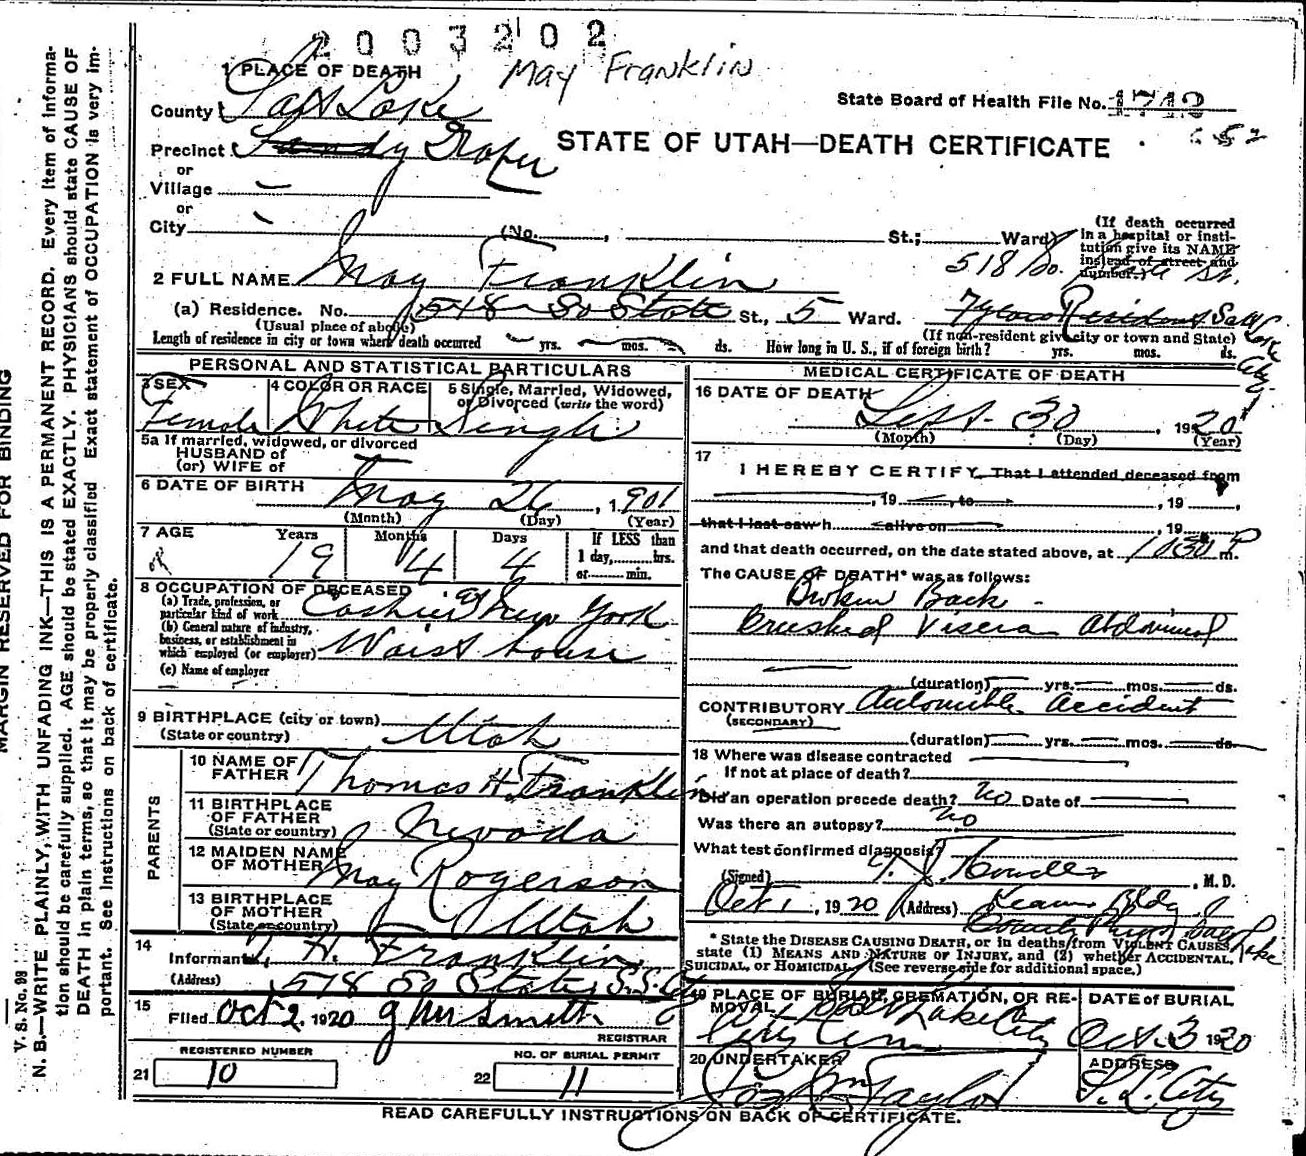 2003202
May Franklin
1 PLACE OF DEATH
State Board of Health File No. 1713
County Salt Lake
Precinct Sandy Draper
STATE OF UTAH—DEATH CERTIFICATE
or
Village
or
City (No. , St.; Ward)
(If death occurred in a hospital or institution give its NAME instead of street and number.)
518 So. State St.
2 FULL NAME May Franklin
(a) Residence. No. 518 So State St., 5 Ward. Resident Salt Lake City
(Usual place of abode) (If non-resident give city or town and State)
Length of residence in city or town where death occurred yrs. mos. ds. How long in U. S., if of foreign birth? yrs. mos. ds.
PERSONAL AND STATISTICAL PARTICULARS
3 SEX Female
4 COLOR OR RACE White
5 Single, Married, Widowed, or Divorced (write the word) Single
5a If married, widowed, or divorced
HUSBAND of
(or) WIFE of
6 DATE OF BIRTH May 26, 1901
(Month) (Day) (Year)
7 AGE Years Months Days If LESS than
19 4 4 1 day,........hrs.
or........min.
8 OCCUPATION OF DECEASED
(a) Trade, profession, or particular kind of work Cashier at New York
(b) General nature of industry, business, or establishment in which employed (or employer) Waist house
(c) Name of employer
9 BIRTHPLACE (city or town)
(State or country) Utah
PARENTS
10 NAME OF FATHER Thomas H. Franklin
11 BIRTHPLACE OF FATHER (State or country) Nevada
12 MAIDEN NAME OF MOTHER May Rogerson
13 BIRTHPLACE OF MOTHER (State or country) Utah
14
Informant T. H. Franklin
(Address) 518 So State S.L.City
15
Filed Oct 2, 1920 J M Smith
REGISTRAR
REGISTERED NUMBER
21 10
NO. OF BURIAL PERMIT
22 11
MEDICAL CERTIFICATE OF DEATH
16 DATE OF DEATH
Sept. 30, 1920
(Month) (Day) (Year)
17
I HEREBY CERTIFY, That I attended deceased from
, 19 , to , 19 ,
that I last saw h alive on , 19
and that death occurred, on the date stated above, at 1030 P m.
The CAUSE OF DEATH* was as follows:
Broken Back
Crushed Viscera Abdominal
(duration) yrs. mos. ds.
CONTRIBUTORY Automobile Accident
(SECONDARY)
(duration) yrs. mos. ds.
18 Where was disease contracted
If not at place of death?
Did an operation precede death? No Date of
Was there an autopsy? no
What test confirmed diagnosis?
(Signed) , M. D.
Oct 1, 1920 (Address) Kearns Bldg
County Phys. Salt Lake
* State the DISEASE CAUSING DEATH, or in deaths from VIOLENT CAUSES, state (1) MEANS AND NATURE OF INJURY, and (2) whether ACCIDENTAL, SUICIDAL, or HOMICIDAL. (See reverse side for additional space.)
19 PLACE OF BURIAL, CREMATION, OR REMOVAL Salt Lake City
City Cem
DATE OF BURIAL
Oct. 3 1920
20 UNDERTAKER
Jos. Wm Taylor
ADDRESS
S. L. City
READ CAREFULLY INSTRUCTIONS ON BACK OF CERTIFICATE.
MARGIN RESERVED FOR BINDING
V. S. No. 98
N. B.—WRITE PLAINLY, WITH UNFADING INK—THIS IS A PERMANENT RECORD. Every item of information should be carefully supplied. AGE should be stated EXACTLY. PHYSICIANS should state CAUSE OF DEATH in plain terms, so that it may be properly classified. Exact statement of OCCUPATION is very important. See instructions on back of certificate.